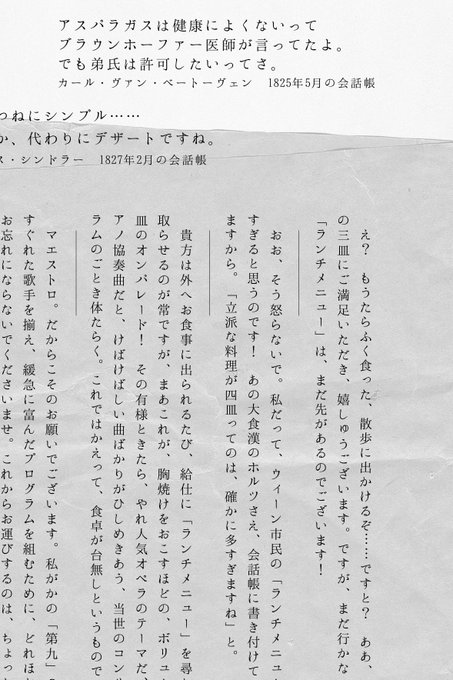 アスパラガスは健康によくないって
ブラウンホーファー医師が言ってたよ。
でも弟氏は許可したいってさ。
カール・ヴァン・ベートーヴェン　1825年5月の会話帳
つねにシンプル……
か、代わりにデザートですね。
ス・シンドラー　1827年2月の会話帳
え？　もうたらふく食った、散歩に出かけるぞ……ですと？　ああ、
の三皿にご満足いただき、嬉しゅうございます。ですが、まだ行かな
「ランチメニュー」は、まだ先があるのでございます！
おお、そう怒らないで。私だって、ウィーン市民の「ランチメニュ
すぎると思うのです！　あの大食漢のホルツさえ、会話帳に書き付けて
ますから。「立派な料理が四皿ってのは、確かに多すぎますね」と。
貴方は外へお食事に出られるたび、給仕に「ランチメニュー」を尋
取らせるのが常ですが、まあこれが、胸焼けをおこすほどの、ボリュ
皿のオンパレード！　その有様ときたら、やれ人気オペラのテーマだ、
アノ協奏曲だと、けばけばしい曲ばかりがひしめきあう、当世のコン
ラムのごとき体たらく。これではかえって、食卓が台無しというもので
マエストロ。だからこそのお願いでございます。私がかの「第九」
すぐれた歌手を揃え、緩急に富んだプログラムを組むために、どれほ
お忘れにならないでくださいませ。これからお運びするのは、ちょっ